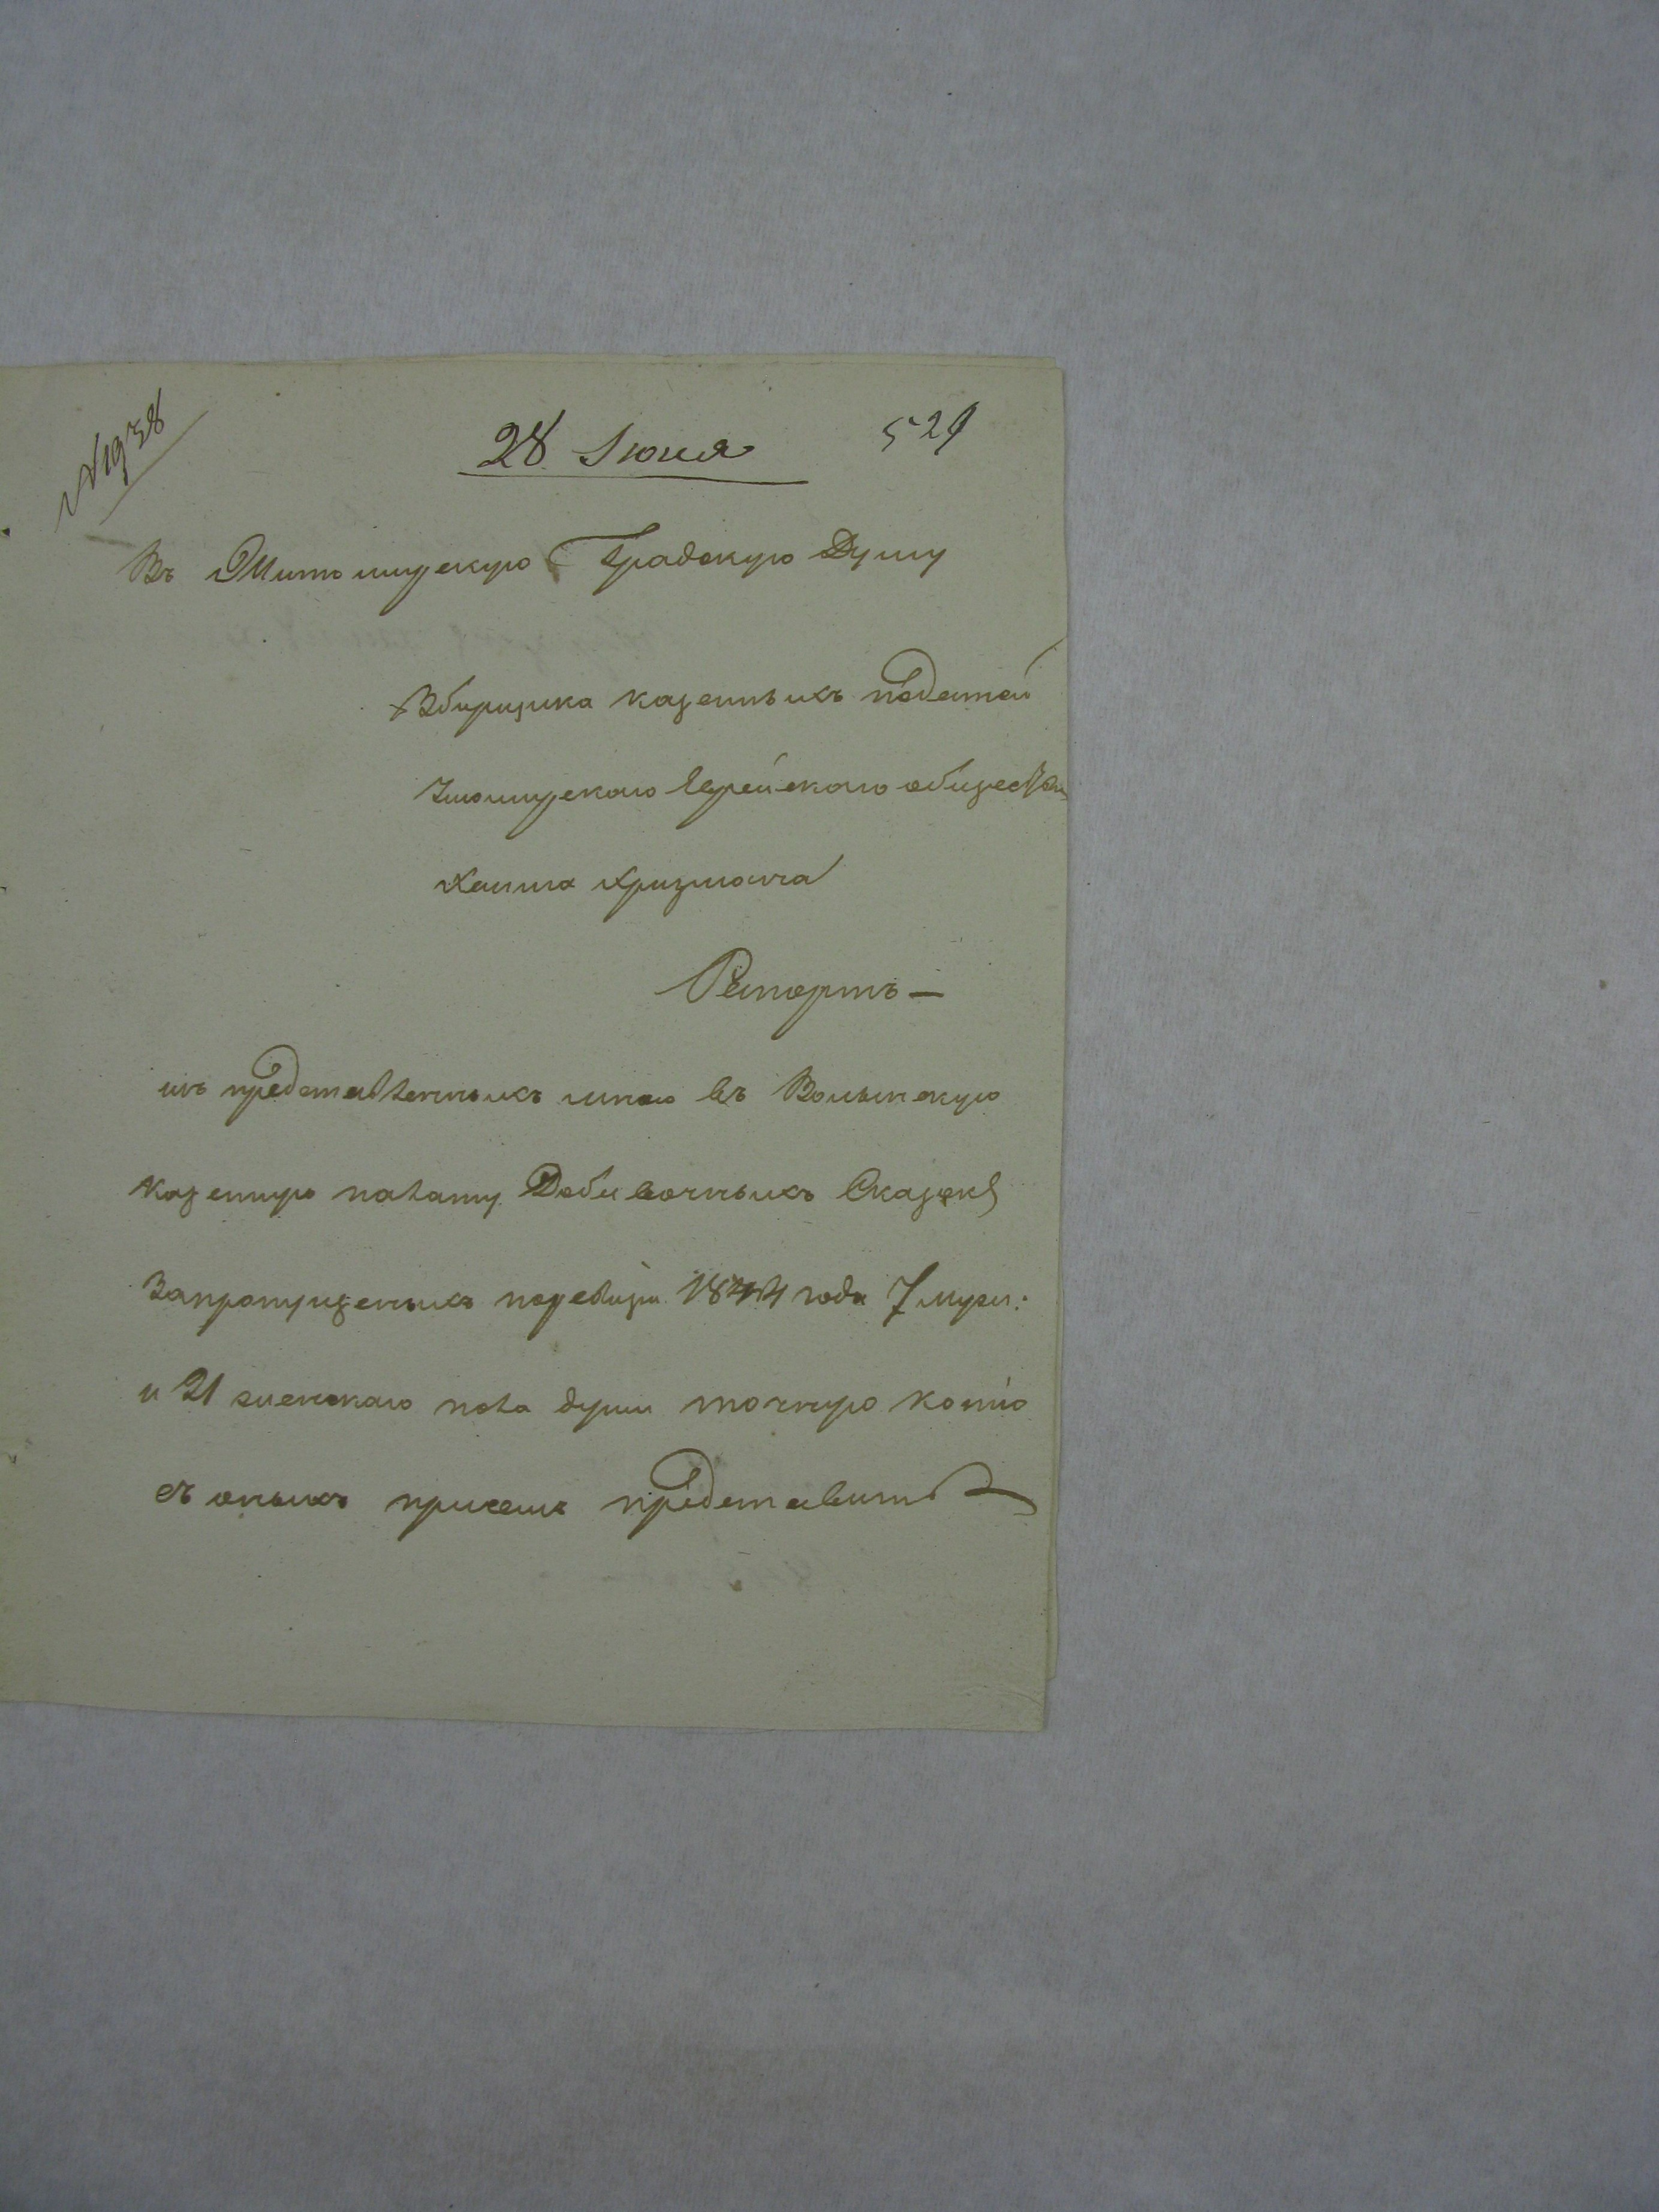 №1938
28 Июня
529
Въ Житомирскую Градскую Думу
Збирщика казенныхъ податей
Еврейского общества
Хаима Кризмана
Рапортъ —
изъ представленныхъ мною въ Волынскую
казенную палату Добавочныхъ Сказокъ
Запропущеныхъ поревизи 1844 года 7 мужс:
и 21 женскаго пола души точную копию
съ оныхъ присемъ представить